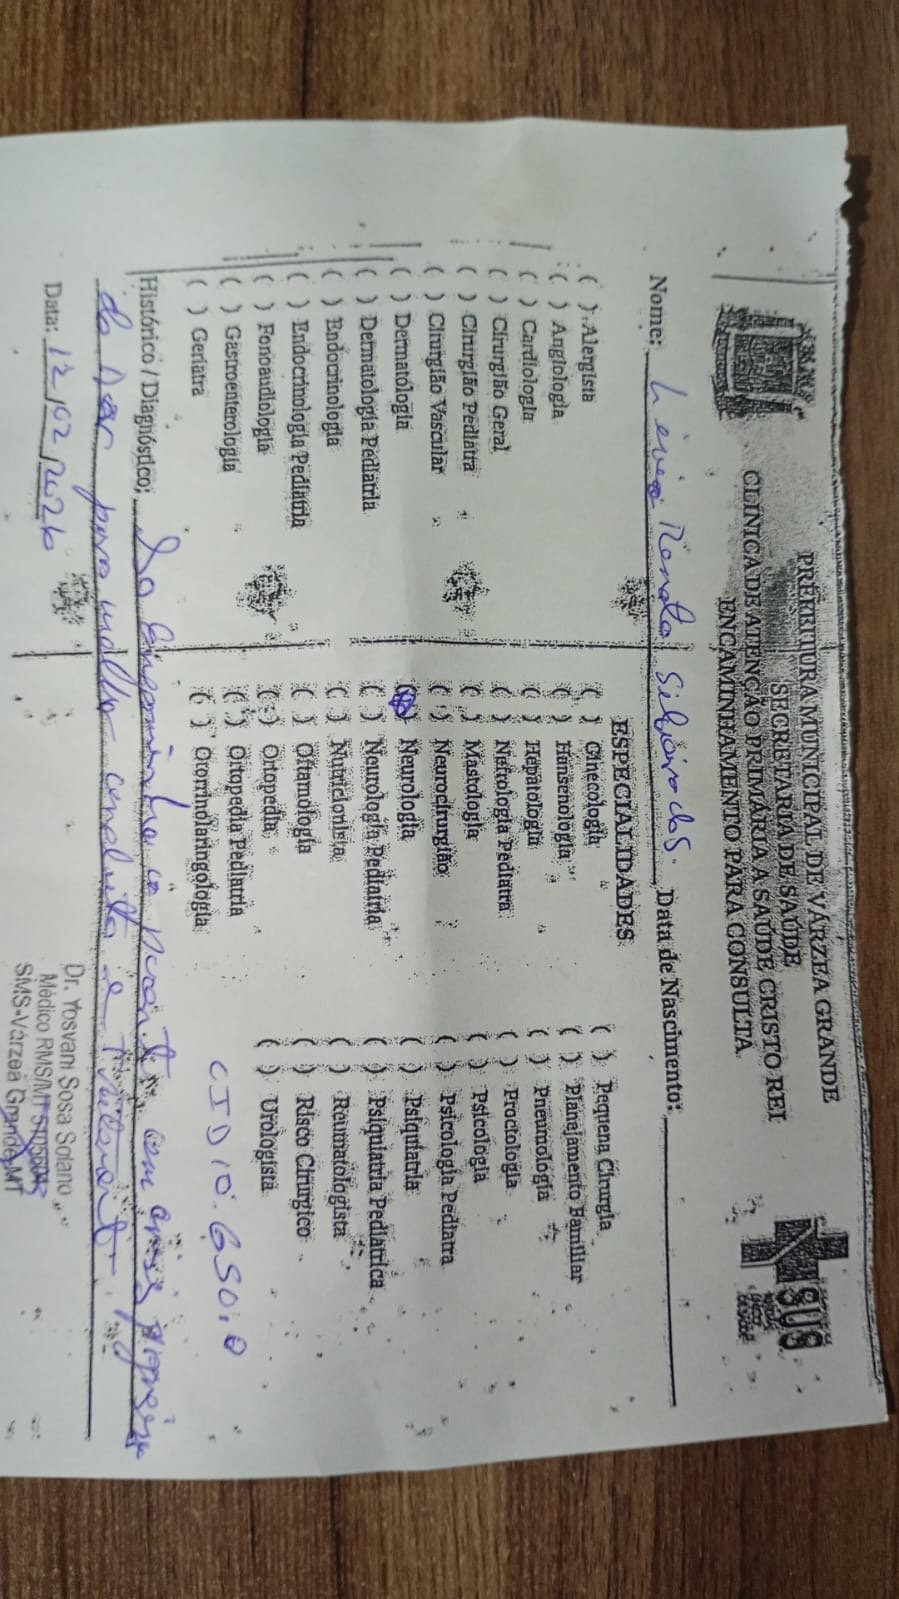 PREFEITURA MUNICIPAL DE VÁRZEA GRANDE
SECRETARIA DE SAÚDE
CLINICA DE ATENÇÃO PRIMÁRIA A SAÚDE CRISTO REI
ENCAMINHAMENTO PARA CONSULTA
SUS
Nome: Renata Data de Nascimento:
ESPECIALIDADES
( ) Alergista ( ) Ginecologia ( ) Pequena Cirurgia
( ) Angiologia ( ) Hansenologia ( ) Planejamento Familiar
( ) Cardiologia ( ) Hepatologia ( ) Pneumologia
( ) Cirurgião Geral ( ) Nefrologia Pediatra ( ) Proctologia
( ) Cirurgião Pediatra ( ) Mastologia ( ) Psicologia
( ) Cirurgião Vascular ( ) Neurocirurgião ( ) Psicologia Pediatra
( ) Dermatologia (X) Neurologia ( ) Psiquiatria
( ) Dermatologia Pediatria ( ) Neurologia Pediatria ( ) Psiquiatria Pediatrica
( ) Endocrinologia ( ) Nutricionista ( ) Reumatologista
( ) Endocrinologia Pediatria ( ) Oftamologia ( ) Risco Cirurgico
( ) Fonoaudiologia ( ) Ortopedia ( ) Urologista
( ) Gastroenterologia ( ) Ortopedia Pediatria
( ) Geriatra ( ) Otorrinolaringologia
CID 10: G50.0
Histórico / Diagnóstico: paciente com crise
para melhor conduta e
Data: 12/02/2026
Dr. Yosvani Sosa Solano
Médico RMS/MT
SMS-Várzea Grande-MT